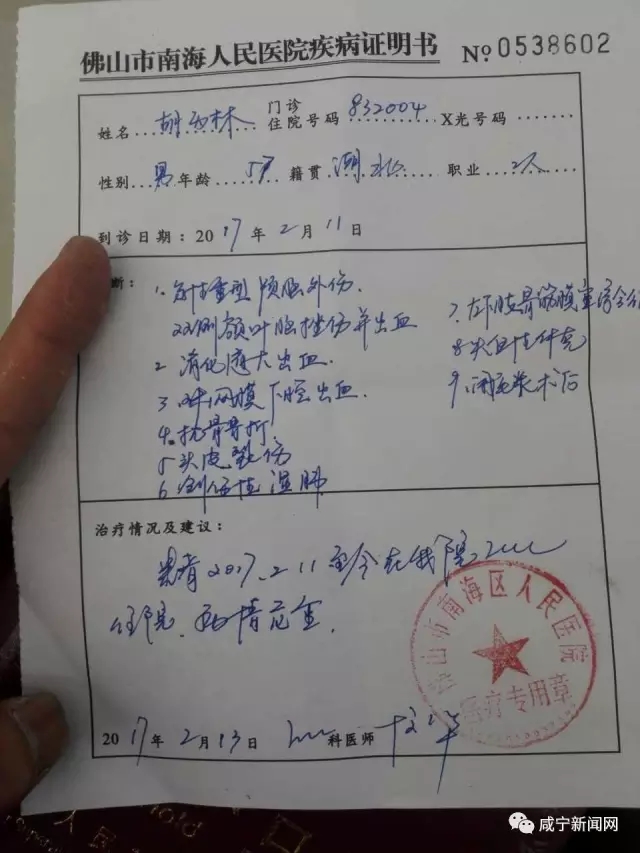 佛山市南海人民医院疾病证明书 No 0538602
姓名 胡 林 门诊住院号码 832004 X光号码
性别 男 年龄 57 籍贯 湖北 职业 工人
到诊日期：2017年2月11日
断：1. 特重型颅脑外伤.
双侧额叶脑挫伤并出血
2 消化道大出血.
3 蛛网膜下腔出血.
4. 枕骨骨折
5 头皮裂伤
6 创伤性湿肺
7. 左下肢骨筋膜室综合
8. 失血性休克
9.
治疗情况及建议：
患者2017.2.11至今在我院ICU
住院. 病情危重.
2017年2月13日 ICU 科医师
佛山市南海区人民医院
医疗专用章
咸宁新闻网